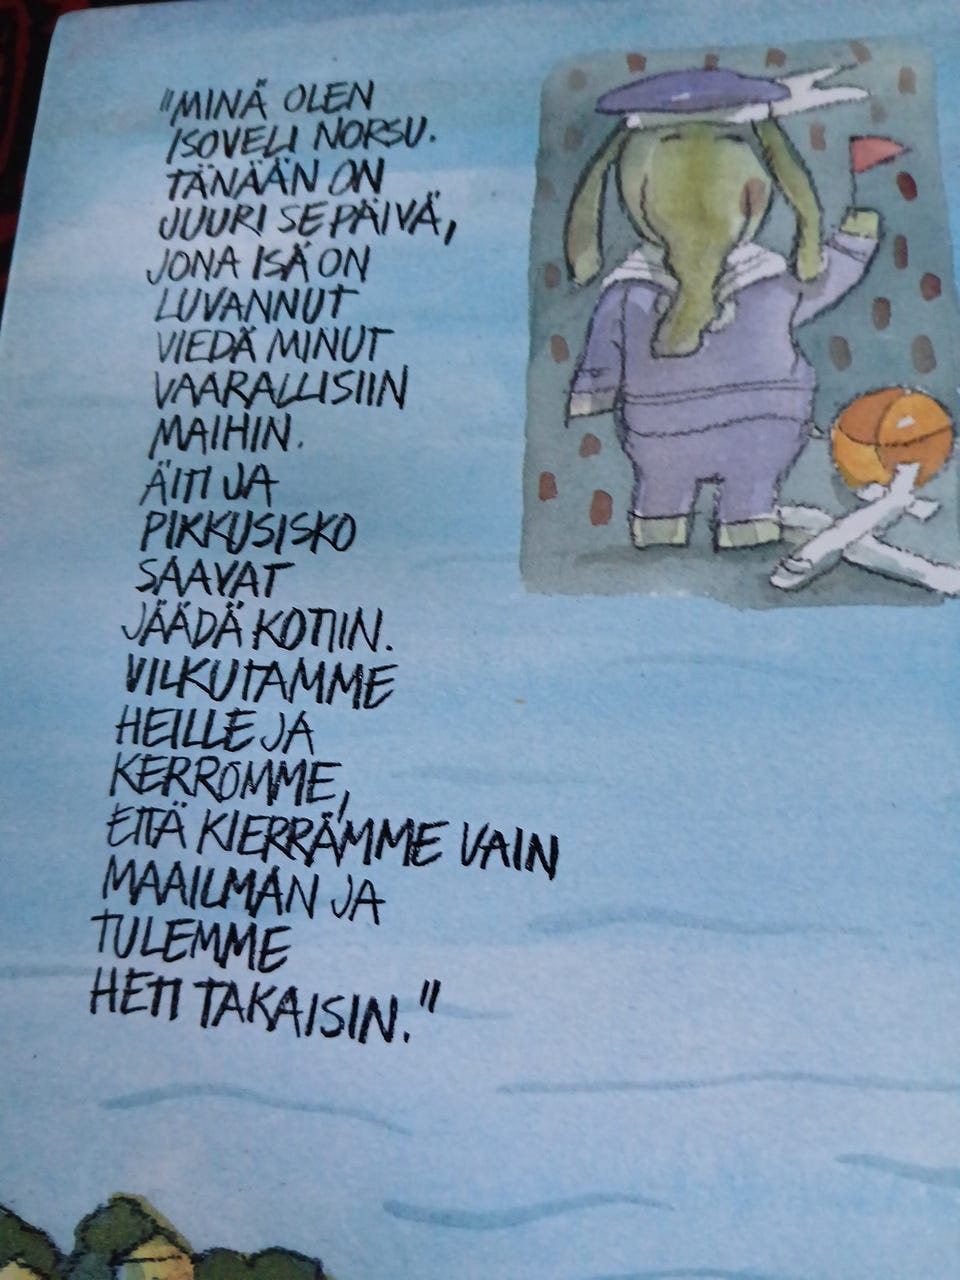 "MINÄ OLEN
ISOVELI NORSU.
TÄNÄÄN ON
JUURI SE PÄIVÄ,
JONA ISÄ ON
LUVANNUT
VIEDÄ MINUT
VAARALLISIIN
MAIHIN.
ÄITI JA
PIKKUSISKO
SAAVAT
JÄÄDÄ KOTIIN.
VILKUTAMME
HEILLE JA
KERROMME,
ETTÄ KIERRÄMME VAIN
MAAILMAN JA
TULEMME
HETI TAKAISIN."